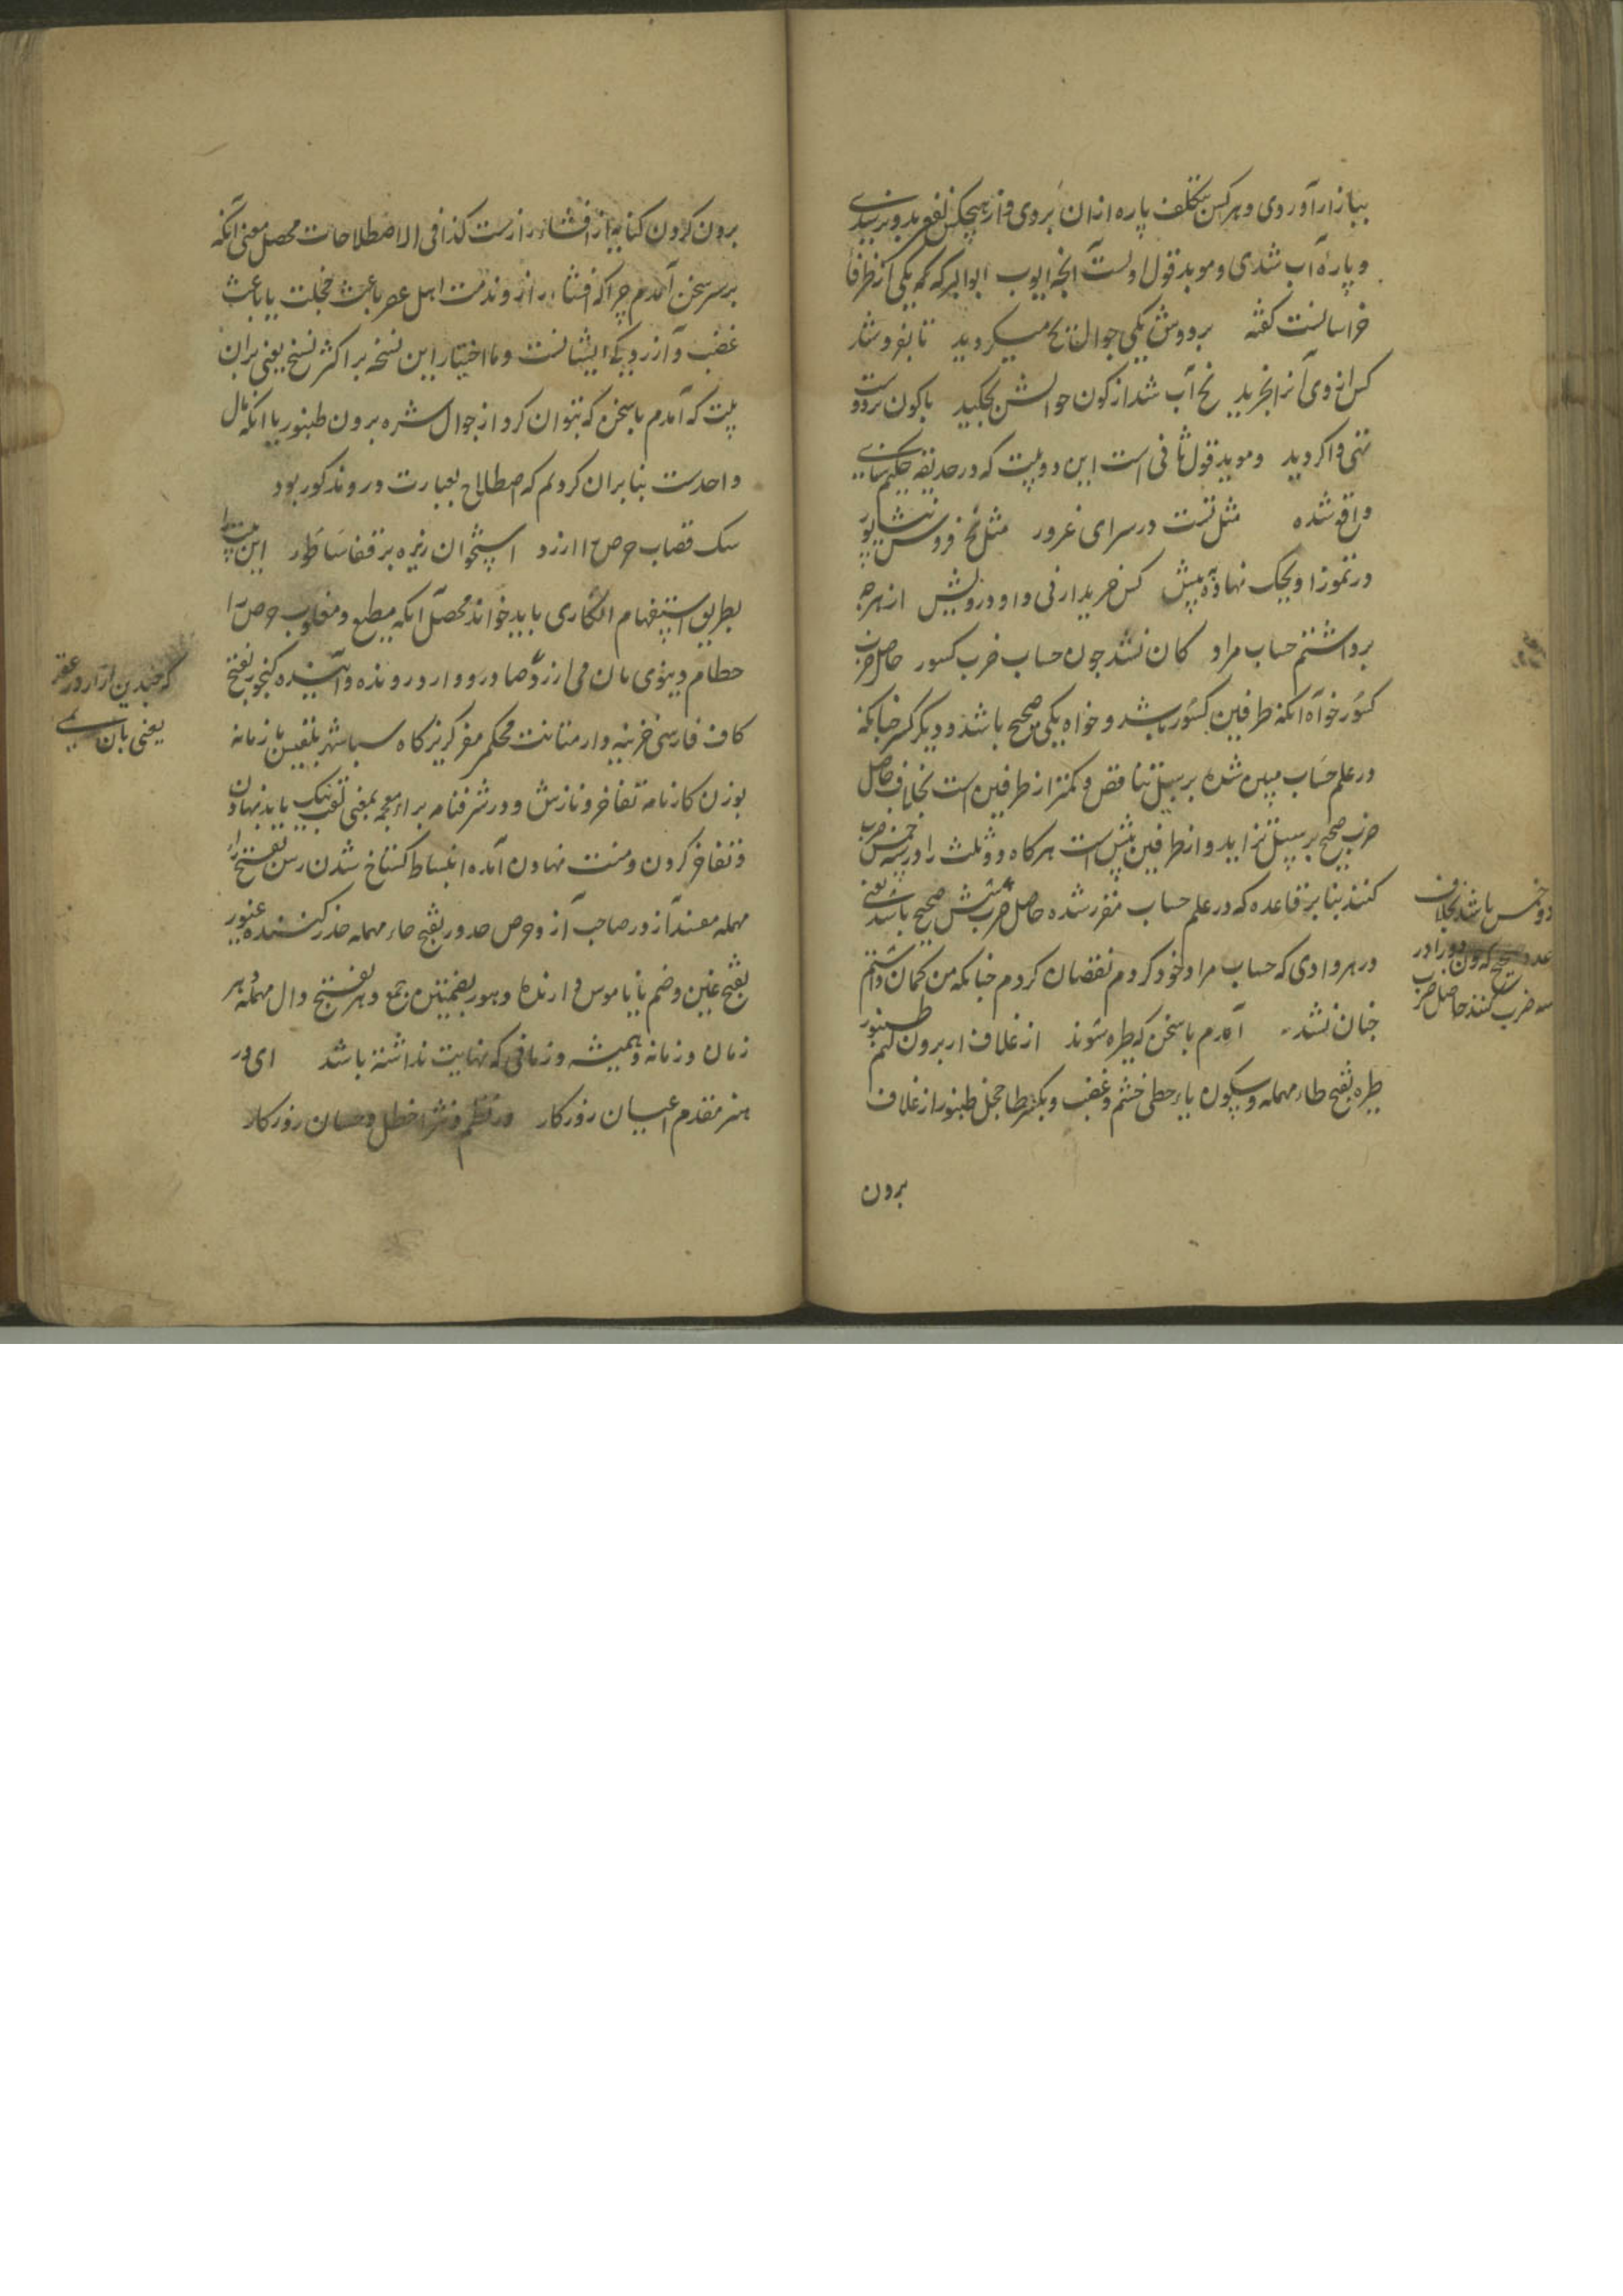 ببازار آوردی و هر کس بتکلف پاره ازان بردی و از هیچکس نفع بدو نرسیدی
و پاره آب شدی و موید قول اولست آنچه ایوب ابوالبرکه که یکی از ظرفا
خراسانست گفته بر دوش یکی جوال یخ میکردید تا بفروشد
کس از وی آنرا نخرید یخ آب شد از کون جوالش بچکید با کون تر و دست
تهی وا کردید و موید قول ثانی است این دو بیت که در حدیقه حکیم سنایی
واقع شده مثل تست در سرای غرور مثل یخ فروش نیشاپور
در تموز او یخک نهاده پیش کس خریدار نی و او درویش از هرچه
برداشتم حساب مراد کان نشد چون حساب ضرب کسور حاصل ضرب
کسور خواه آنکه طرفین کسور باشد و خواه یکی صحیح باشد و دیگر کسر چنانکه
در علم حساب مبین شده بر سبیل تناقص و کمتر از طرفین است بخلاف حاصل
ضرب صحیح بر سبیل تزاید و از طرفین بیش است هرکاه دو ثلث را در سه خمس ضرب
کنند بنا بر قاعده که در علم حساب مقرر شده حاصل ضرب شش صحیح باشد یعنی
دو خمس باشد بخلاف
عدد صحیح که چون دو را در
سه ضرب کنند حاصل ضرب
در هر وادی که حساب مراد خود کردم نقصان کردم چنانکه من کمان داشتم
چنان نشد آمدم با سخن که طیره شوند از غلاف ار برون کنم طنبور
طیره بفتح طاء مهمله و سکون یاء حطی خشم و غضب و بکسر طا خجل طنبور از غلاف
برون
برون کردن کنایه از افشاء رازست کذا فی الاصطلاحات محصل معنی آنکه
بر سر سخن آمدم چرا که افشاء راز و مذمت اهل عصر باعث خجلت یا باعث
غضب و آزردیکی ایشانست و ما اختیار این نسخه بر اکثر نسخ یعنی بران
بیت که آمدم با سخن که نتوان کرد از جوال شره برون طنبور با آنکه مآل
واحدست بنا بران کردیم که اصطلاح بعبارت درو مذکور بود
سک قصاب حرص را ارزد استخوان ریزه بر قفا ساطور این بیت را
بطریق استفهام انکاری باید خواند محصل آنکه مطیع و مغلوب حرص را
حطام دنیوی بآن می ارزد که چندین آزار در عقر
یعنی بآن
صادر و وارد رونده و آینده کنجور بفتح
کاف فارسی خزینه دار متانت محکم مفر کریزکاه سباشهر بلقیس یا زنامه
بوزن کارنامه تفاخر و نازش و در شرفنامه براء معجمه بمعنی لقب نیک باید نهادن
و تفاخر کردن و منت نهادن آمده انبساط کستاخ شدن رسن بفتح راء
مهمله مفسد آزور صاحب آز و حرص حذور بفتح حاء مهمله حذر کننده غیور
بفتح غین و ضم یا با ناموس دارنده و هور بضمتین جمع دهر بفتح دال مهمله و هر
زمان و زمانه و همیشه و زمانی که نهایت نداشته باشد ای در
هنر مقدم اعیان روزکار در نظم و نثر اخطل و حسان روزکار